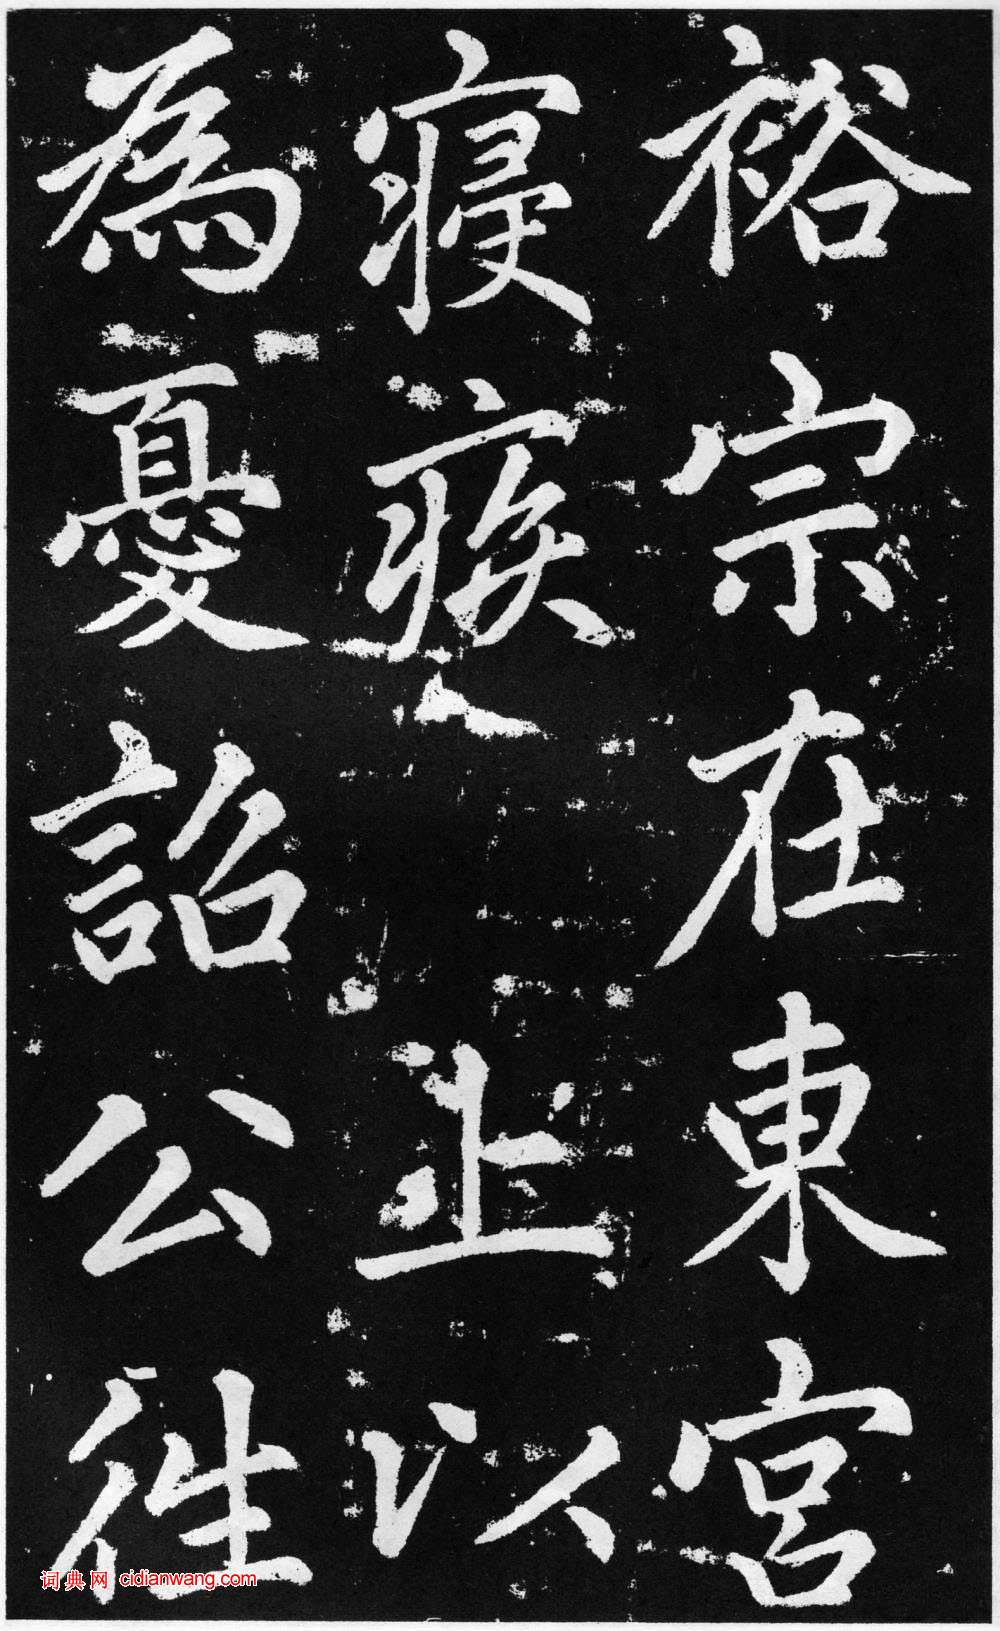 裕宗在東宮
寝疾上以
為憂詔公往
词典网 cidianwang.com